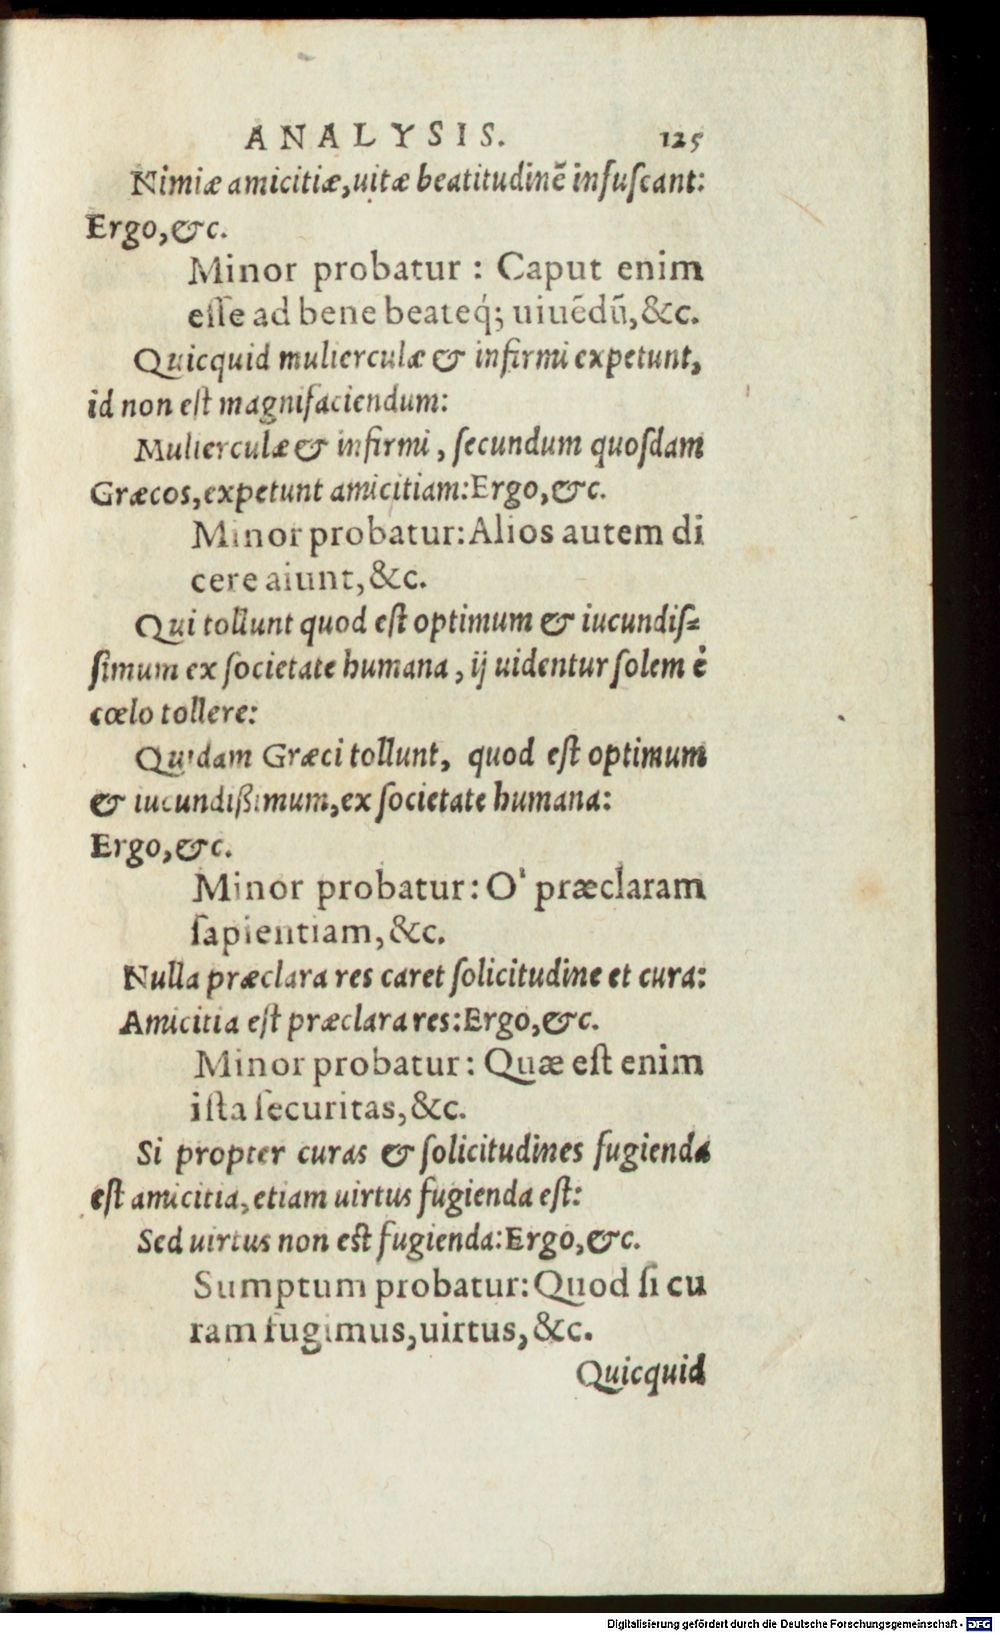 ANALYSIS. 125
Nimiæ amicitiæ, uitæ beatitudinẽ infuſcant:
Ergo, &c.
Minor probatur: Caput enim
eſſe ad bene beateq́; uiuẽdũ, &c.
Quicquid mulierculæ & infirmi expetunt,
id non eſt magnifaciendum:
Mulierculæ & infirmi, ſecundum quoſdam
Græcos, expetunt amicitiam: Ergo, &c.
Minor probatur: Alios autem di
cere aiunt, &c.
Qui tollunt quod eſt optimum & iucundiſ=
ſimum ex ſocietate humana, ij uidentur ſolem è
cœlo tollere:
Quidam Græci tollunt, quod eſt optimum
& iucundißimum, ex ſocietate humana:
Ergo, &c.
Minor probatur: O' præclaram
ſapientiam, &c.
Nulla præclara res caret ſolicitudine et cura:
Amicitia eſt præclara res: Ergo, &c.
Minor probatur: Quæ eſt enim
iſta ſecuritas, &c.
Si propter curas & ſolicitudines fugienda
eſt amicitia, etiam uirtus fugienda eſt:
Sed uirtus non eſt fugienda: Ergo, &c.
Sumptum probatur: Quod ſi cu
ram fugimus, uirtus, &c.
Quicquid
Digitalisierung gefördert durch die Deutsche Forschungsgemeinschaft - DFG